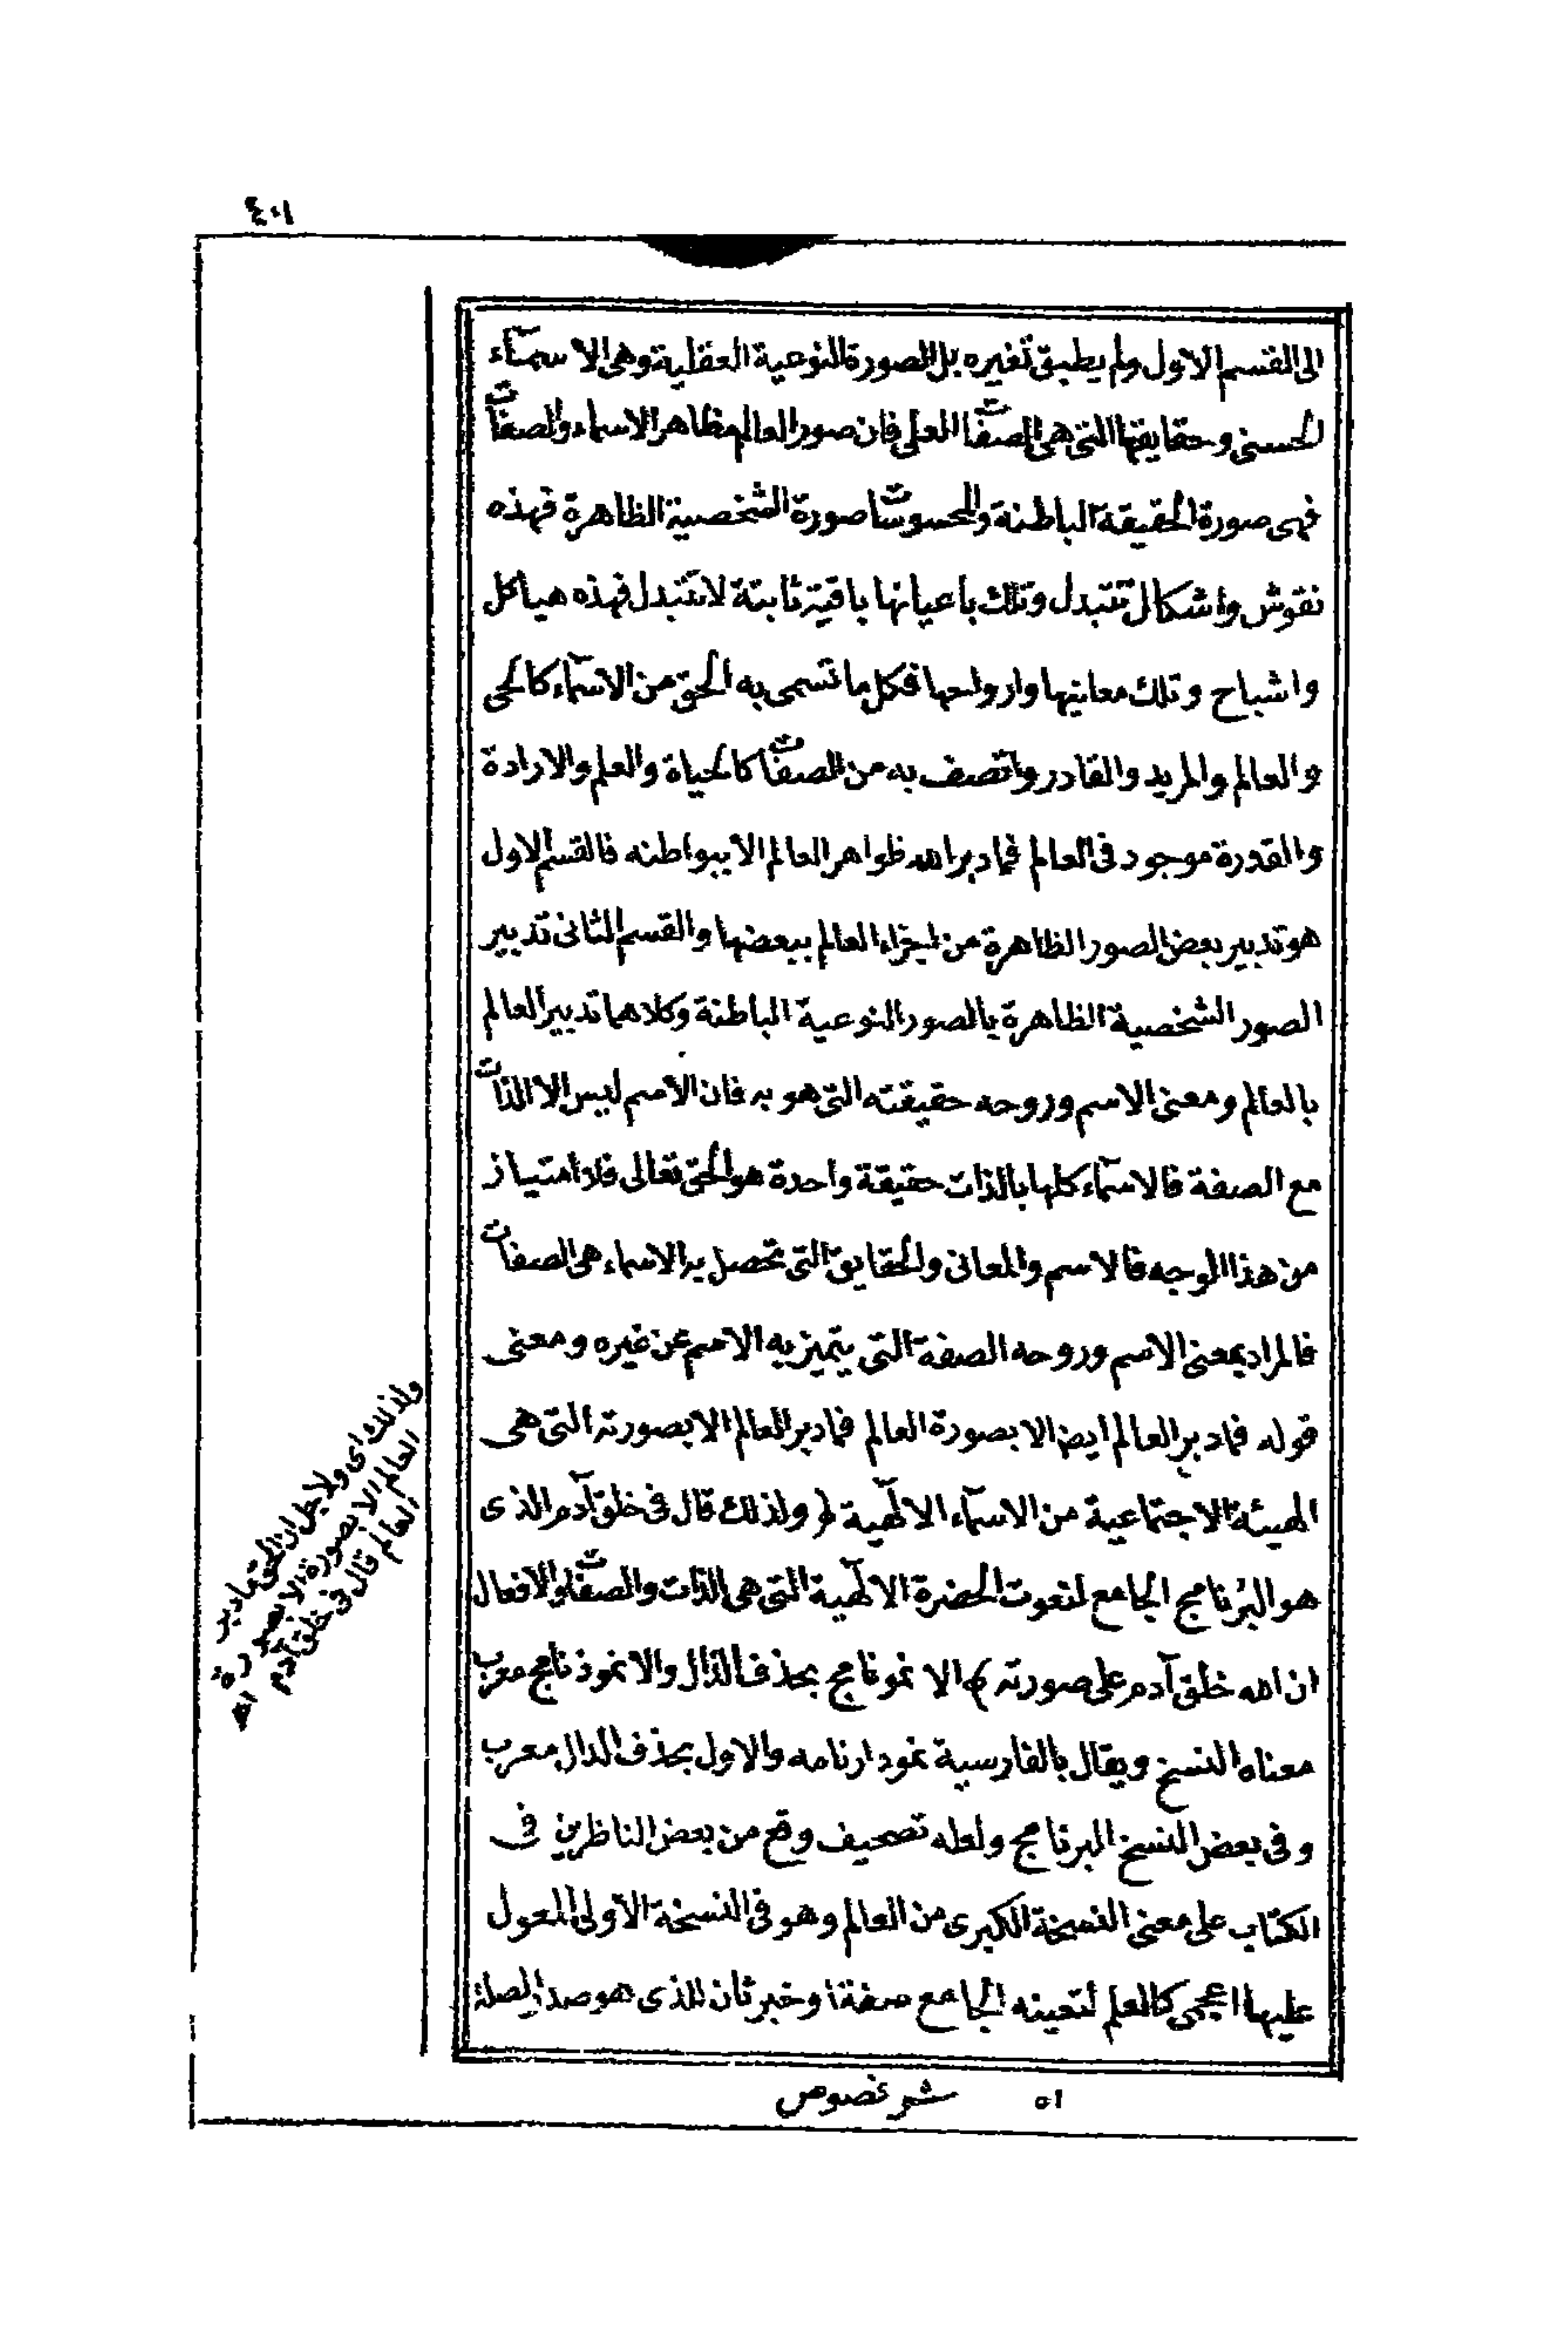 ٤٠١
الى القسم الاول ولم يطبق تغيره بل الصورة النوعية العقلية وهى الاسمآء
الحسنى وحقايقها التى هى الصفات العلى فان صور العالم مظاهر الاسماء والصفات
فهى صورة الحقيقة الباطنة والمحسوسات صورة الشخصية الظاهرة فهذه
نقوش واشكال تتبدل وتلك باعيانها باقية ثابتة لا تتبدل فهذه هياكل
واشباح وتلك معانيها وارواحها فكل ما تسمى به الحق من الاسمآء كالحى
والعالم والمريد والقادر واتصف به من الصفات كالحياة والعلم والارادة
والقدرة موجود فى العالم فما دبر الله ظواهر العالم الا ببواطنه فالقسم الاول
هو تدبير بعض الصور الظاهرة من اجزاء العالم ببعضها والقسم الثانى تدبير
الصور الشخصية الظاهرة بالصور النوعية الباطنة وكلاهما تدبير العالم
بالعالم ومعنى الاسم وروحه حقيقته التى هو به فان الاسم ليس الا الذات
مع الصفة فالاسمآء كلها بالذات حقيقة واحدة هو الحق تعالى فلا امتياز
من هذا الوجه فالاسم والمعانى والحقايق التى تحصل به الاسماء هى الصفات
فالمراد بمعنى الاسم وروحه الصفة التى يتميز به الاسم عن غيره ومعنى
قوله فما دبر العالم ايضا الا بصورة العالم فما دبر العالم الا بصورته التى هى
الهيئة الاجتماعية من الاسمآء الالهية ﴿ ولذلك قال فى خلق آدم الذى
هو البرنامج الجامع لنعوت الحضرة الالهية التى هى الذات والصفات والافعال
ان الله خلق آدم على صورته ﴾ الانمونامج بحذف الدال والانموذنامج معرب
معناه النسخ ويقال بالفارسية نمودارنامه والاول بحذف الدال معرب
وفى بعض النسخ البرنامج ولعله تصحيف وقع من بعض الناظرين فى
الكتاب على معنى النسخة الكبرى من العالم وهو فى النسخة الاولى المعول
عليها اعجمى كالعلم لتعينه الجامع صفة او خبر ثان للذى هو صدر الصلة
ولذلك اى ولاجل ان الحق ما دبر
العالم الا بصورة الا بصورة
العالم قال فى خلق آدم
٥١ شر فصوص